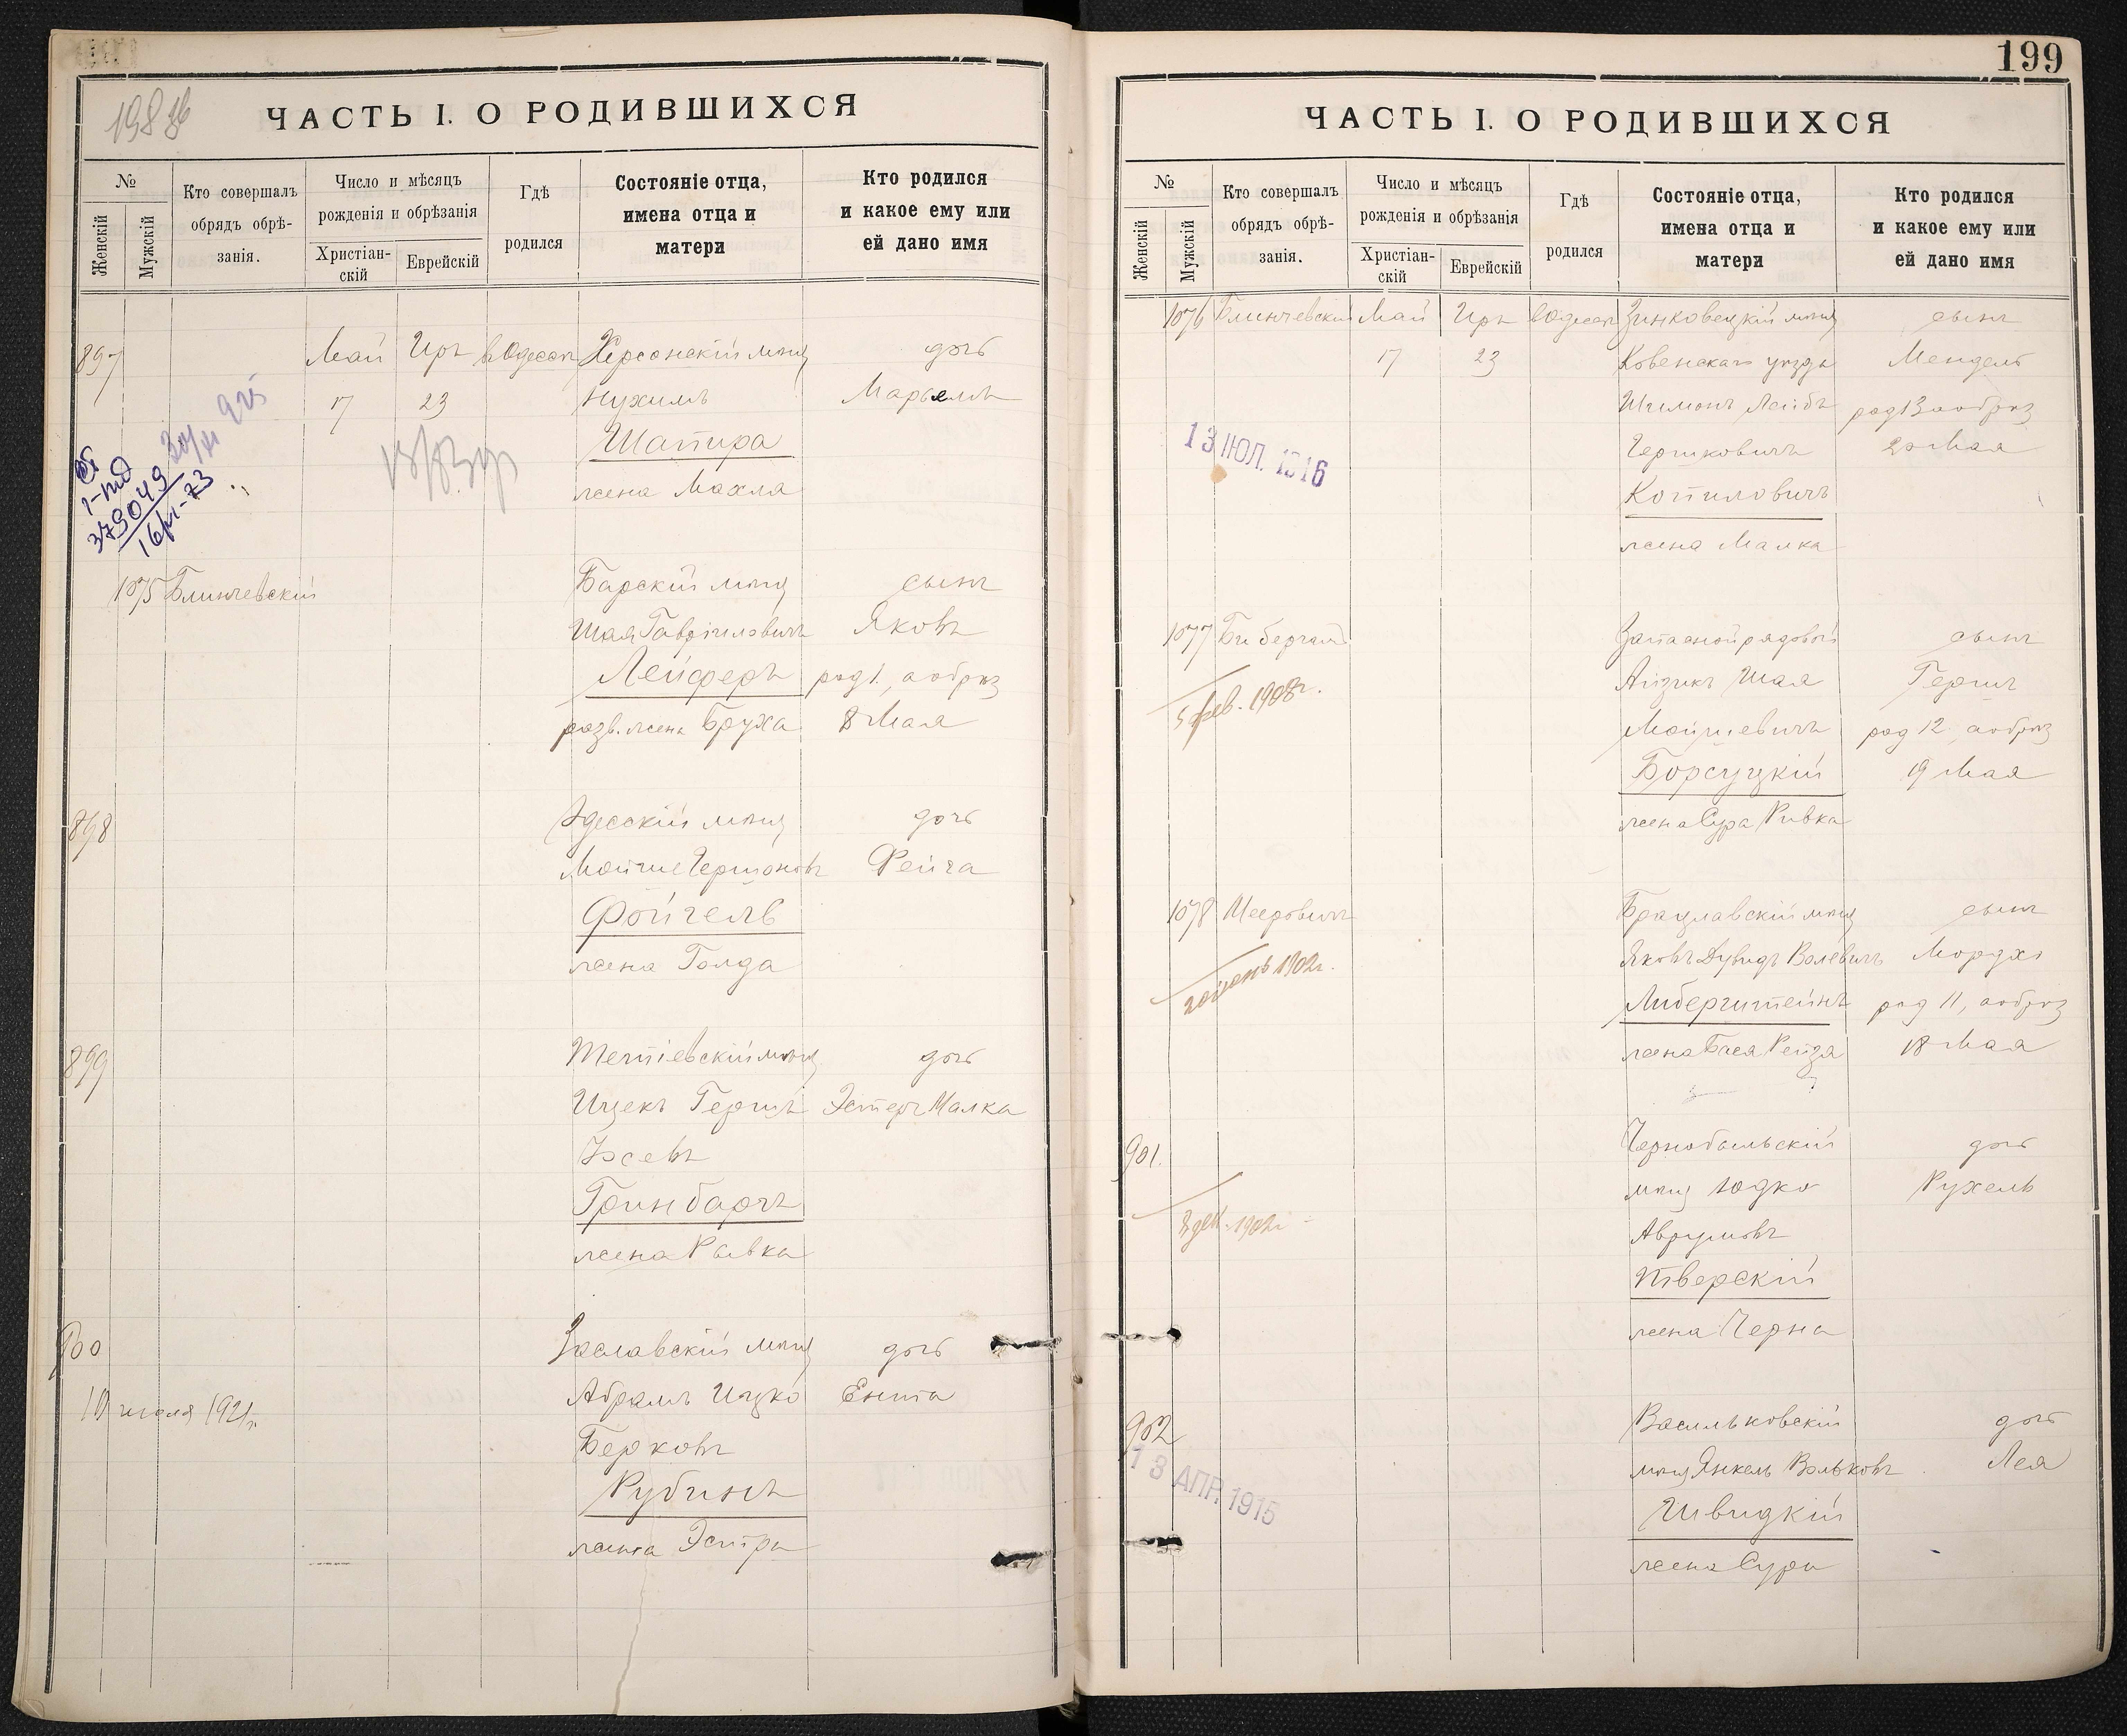 198 об
ЧАСТЬ I. О РОДИВШИХСЯ
№
Женскій
Мужскій
Кто совершалъ
обрядъ обрѣ-
занія.
Число и мѣсяцъ
рожденія и обрѣзанія
Христіан-
скій
Еврейскій
Гдѣ
родился
Состояніе отца,
имена отца и
матери
Кто родился
и какое ему или
ей дано имя
897 Май Иръ в Одессѣ Херсонскій мѣщ дочь
17 23 Нухимъ Марьемъ
Шапира
жена Махля
379049
16/VI-73
1075 Блинчевскій Барскій мѣщ сынъ
Шая Гавріиловичъ Яковъ
Лейферъ род 1, а обрѣз
разв. жена Бруха 8 Мая
898 Одесскій мѣщ дочь
Мойше Гершоновъ Фейга
Фойгель
жена Голда
899 Тетіевскій мѣщ дочь
Ицекъ Гершъ Эстеръ Малка
Іосевъ
Гринбаргъ
жена Ривка
900 Заславскій мѣщ дочь
10 июля 1921г. Абрамъ Ицко Ента
Берковъ
Рубинъ
жена Эстра
199
ЧАСТЬ I. О РОДИВШИХСЯ
№
Женскій
Мужскій
Кто совершалъ
обрядъ обрѣ-
занія.
Число и мѣсяцъ
рожденія и обрѣзанія
Христіан-
скій
Еврейскій
Гдѣ
родился
Состояніе отца,
имена отца и
матери
Кто родился
и какое ему или
ей дано имя
1076 Блинчевскій Май Иръ в Одессѣ Зинковецкій мѣщ сынъ
17 23 Ковенскаго уѣзда Мендель
Шимонъ Лейбъ род 13 а обрѣз
13 ІЮЛ. 1916 20 Мая
Копиловичъ
жена Малка
1077 Запасной рядовой сынъ
Айзикъ Шая Гершъ
5 фев. 1908г. Мойшевичъ род 12, а обрѣз
Борсуцкій 19 Мая
жена Сура Ривка
1078 Мееровичъ Брацлавскій мѣщ сынъ
Яковъ Дувидъ Волевичъ Мордхо
1902г. Либерштейнъ род 11, а обрѣз
жена Бася Рейза 18 Мая
901. Чернобыльскій дочь
мѣщ Юдко Рухель
8 дек. 1902г Аврумовъ
Тверскій
жена Черна
902 Васильковскій дочь
13 АПР. 1915 мѣщ Янкель Вольковъ Лея
Швидкій
жена Сура